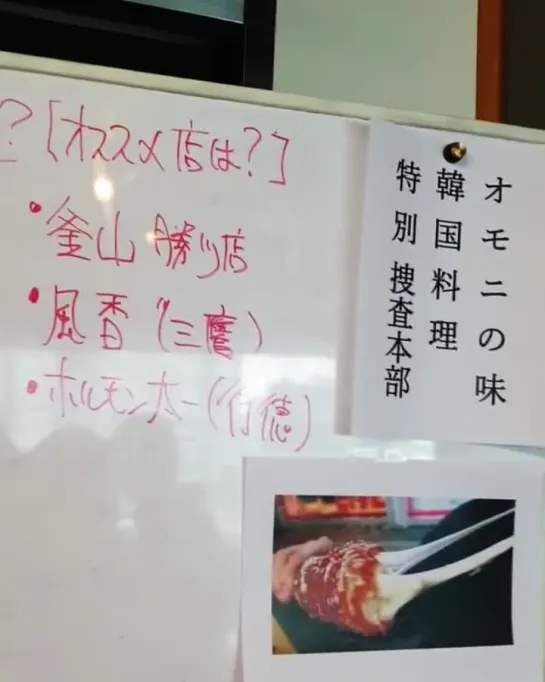 ?[オススメ店は?]
・釜山 勝川店
・風香(三鷹)
・ホルモン太一(行徳)
オモニの味
韓国料理
特別 捜査本部